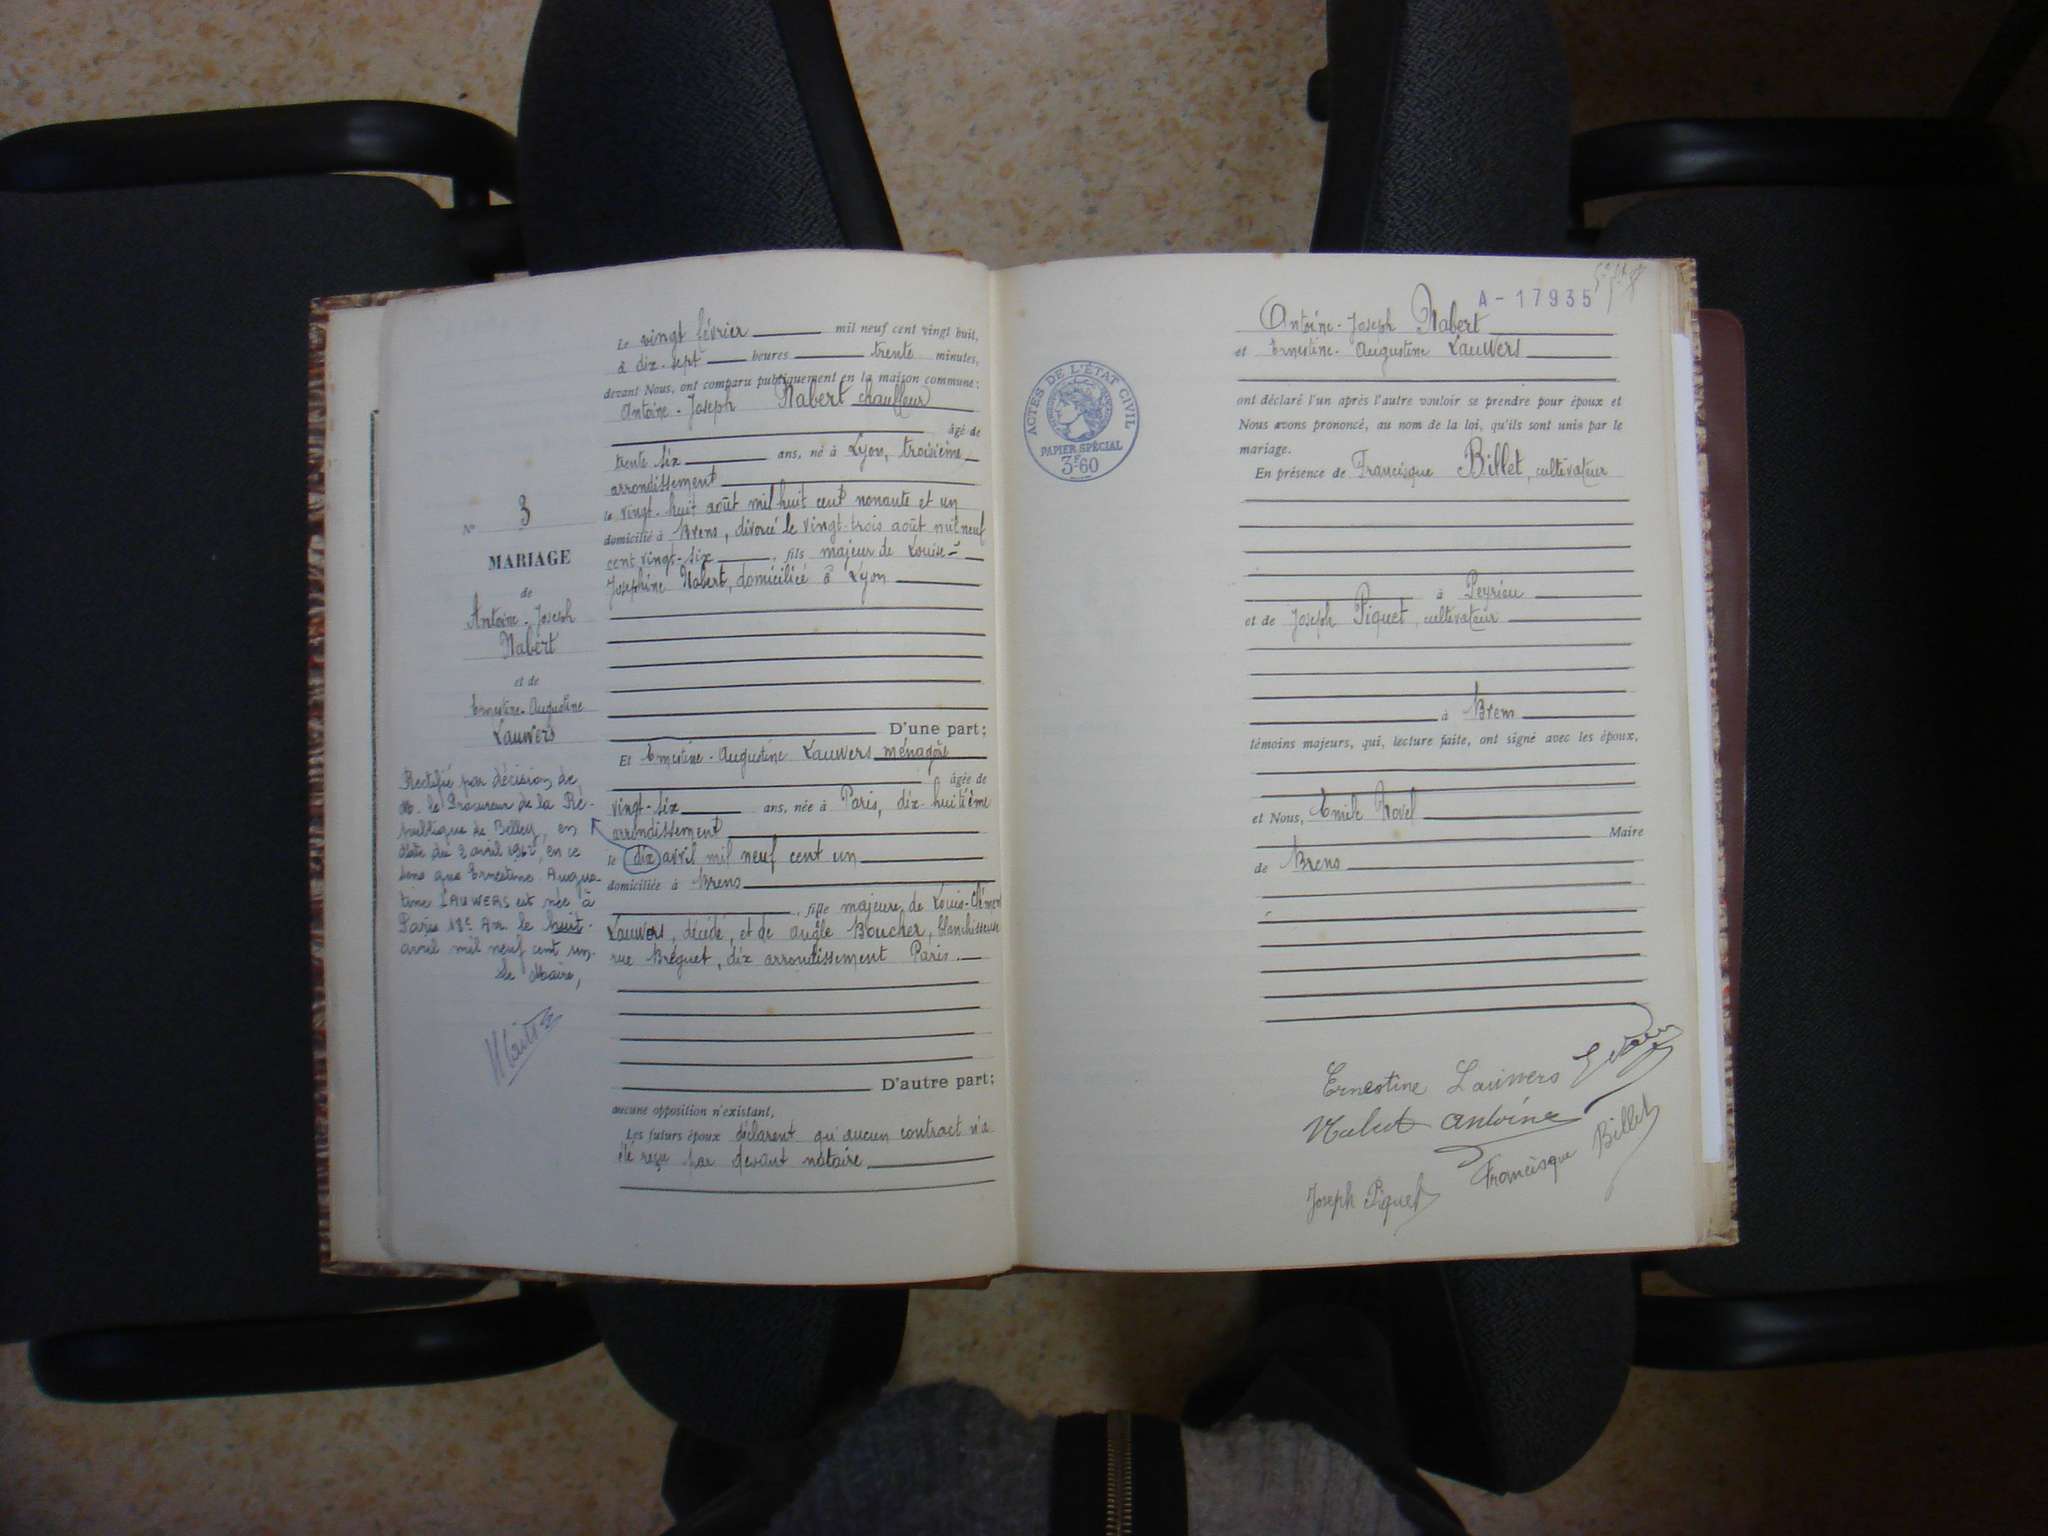 Le vingt février mil neuf cent vingt huit,
à dix-sept heures trente minutes,
devant Nous, ont comparu publiquement en la maison commune:
Antoine-Joseph Nabert chauffeur
âgé de
trente six ans, né à Lyon, troisième
arrondissement
le vingt-huit août mil huit cent nonante et un
domicilié à Brens, divorcé le vingt-trois août mil neuf
cent vingt-six, fils majeur de Louise-
Josephine Nabert, domiciliée à Lyon
D'une part;
Et Ernestine-Augustine Lauwers ménagère
âgée de
vingt-six ans, née à Paris, dix-huitième
arrondissement
le dix avril mil neuf cent un
domiciliée à Brens
, fille majeure de Louis-Clément
Lauwers, décédé, et de Boucher, blanchisseuse
rue Bréguet, dix arrondissement Paris.
D'autre part;
aucune opposition n'existant,
Les futurs époux déclarent qu'aucun contract n'a
été reçu par devant notaire
N° 3
MARIAGE
de
Antoine-Joseph
Nabert
et de
Ernestine-Augustine
Lauwers
Rectifié par décision de
M. le Procureur de la Ré-
publique de Belley, en
date du 2 avril 1962, en ce
sens que Ernestine Augus-
tine LAUWERS est née à
Paris 18e Arr. le huit-
avril mil neuf cent un.
Le Maire,
ACTES DE L'ÉTAT CIVIL
PAPIER SPÉCIAL
3F60
A-17935
Antoine-Joseph Nabert
et Ernestine-Augustine Lauwers
ont déclaré l'un après l'autre vouloir se prendre pour époux et
Nous avons prononcé, au nom de la loi, qu'ils sont unis par le
mariage.
En présence de Francisque Billet, cultivateur
à Peyrieu
et de Joseph Piquet, cultivateur
à Brens
témoins majeurs, qui, lecture faite, ont signé avec les époux,
et Nous, Emile Novel
Maire
de Brens
Ernestine Lauwers
Nabert Antoine
Francisque Billet
Joseph Piquet